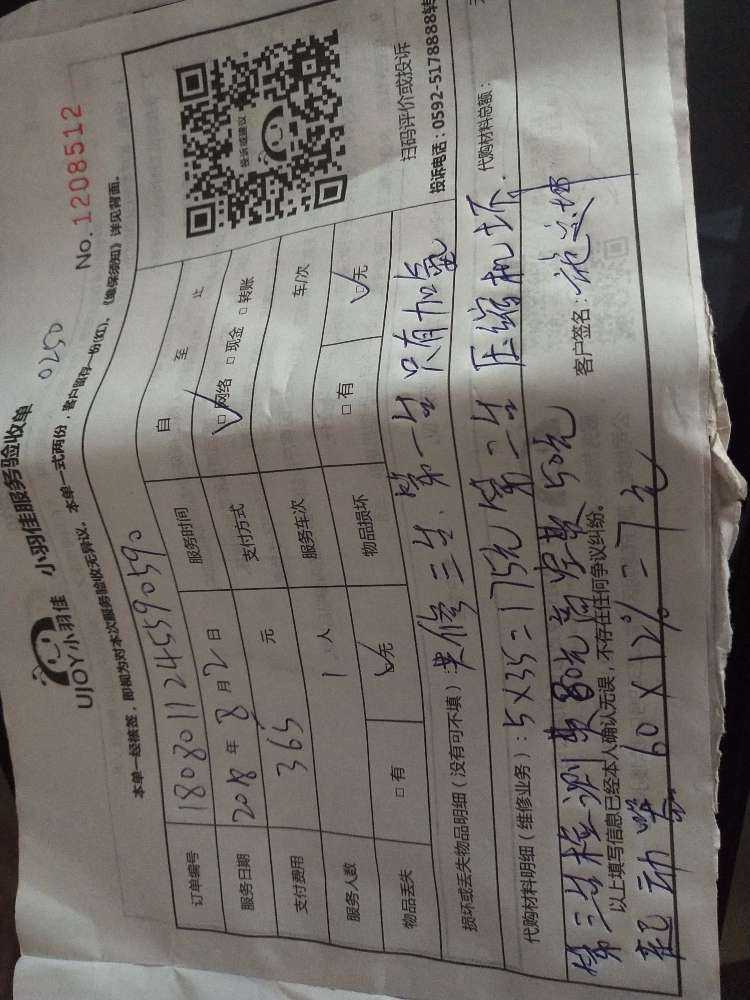 UJOY小羽佳 小羽佳服务验收单 0250
No. 1208512
本单一经核签，即视为对本次服务验收无异议。本单一式两份，客户留存一份(红)，《维保须知》详见背面。
订单编号 1808011245590590
服务日期 2018年8月2日 服务时间 自 至 止
支付费用 365 元 支付方式 □网络 □现金 □转账
服务人数 1 人 服务车次 车/次
物品丢失 □有 □无 物品损坏 □有 □无
投诉或建议
扫码评价或投诉
投诉电话：0592-5178888转
损坏或丢失物品明细（没有可不填）：共修三台．第一台 只有加氟
代购材料明细（维修业务）：5×35=175元 第二台 压缩机坏． 代购材料总额：
第三台检测费80元 高空费50元
以上填写信息已经本人确认无误，不存在任何争议纠纷。 客户签名：
起动器 60×12%=7元